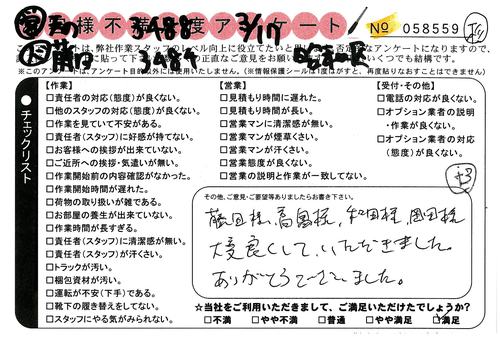 お客様不満足度アンケート
No 058559
3488 3/17
3484
このアンケートは、弊社作業スタッフのレベル向上に役立てたいと
否定的なアンケートになりますので、
正直なご意見をお願い
いくつでも結構です。
※このアンケートは、アンケート目的以外には使用いたしません。(※情報保護シールは1度はがすと、再度貼りなおすことはできません)
チェックリスト
【作業】
□責任者の対応(態度)が良くない。
□他のスタッフの対応(態度)が良くない。
□作業を見ていて不安がある。
□責任者(スタッフ)に好感が持てない。
□お客様への挨拶が出来ていない。
□ご近所への挨拶・気遣いが無い。
□作業開始前の内容確認がなかった。
□作業開始時間が遅れた。
□荷物の取り扱いが雑である。
□お部屋の養生が出来ていない。
□作業時間が長すぎる。
□責任者(スタッフ)に清潔感が無い。
□責任者(スタッフ)が汗くさい。
□トラックが汚い。
□梱包資材が汚い。
□運転が不安(下手)である。
□靴下の履き替えをしてない。
□スタッフにやる気がみられない。
【営業】
□見積もり時間に遅れた。
□見積もり時間が長い。
□営業マンに清潔感が無い。
□営業マンが煙草くさい。
□営業マンが汗くさい。
□営業態度が良くない。
□営業の説明と作業が一致してない。
【受付・その他】
□電話の対応が良くない。
□オプション業者の説明
・作業が良くない。
□オプション業者の対応
(態度)が良くない。
その他、ご意見・ご要望等ありましたらお書き下さい。
藤田様、高畠様、和田様、岡田様
大変良くして、いただきました。
ありがとうございました。
★当社をご利用いただきまして、ご満足いただけたでしょうか?
□不満 □やや不満 □普通 □やや満足 ☑満足